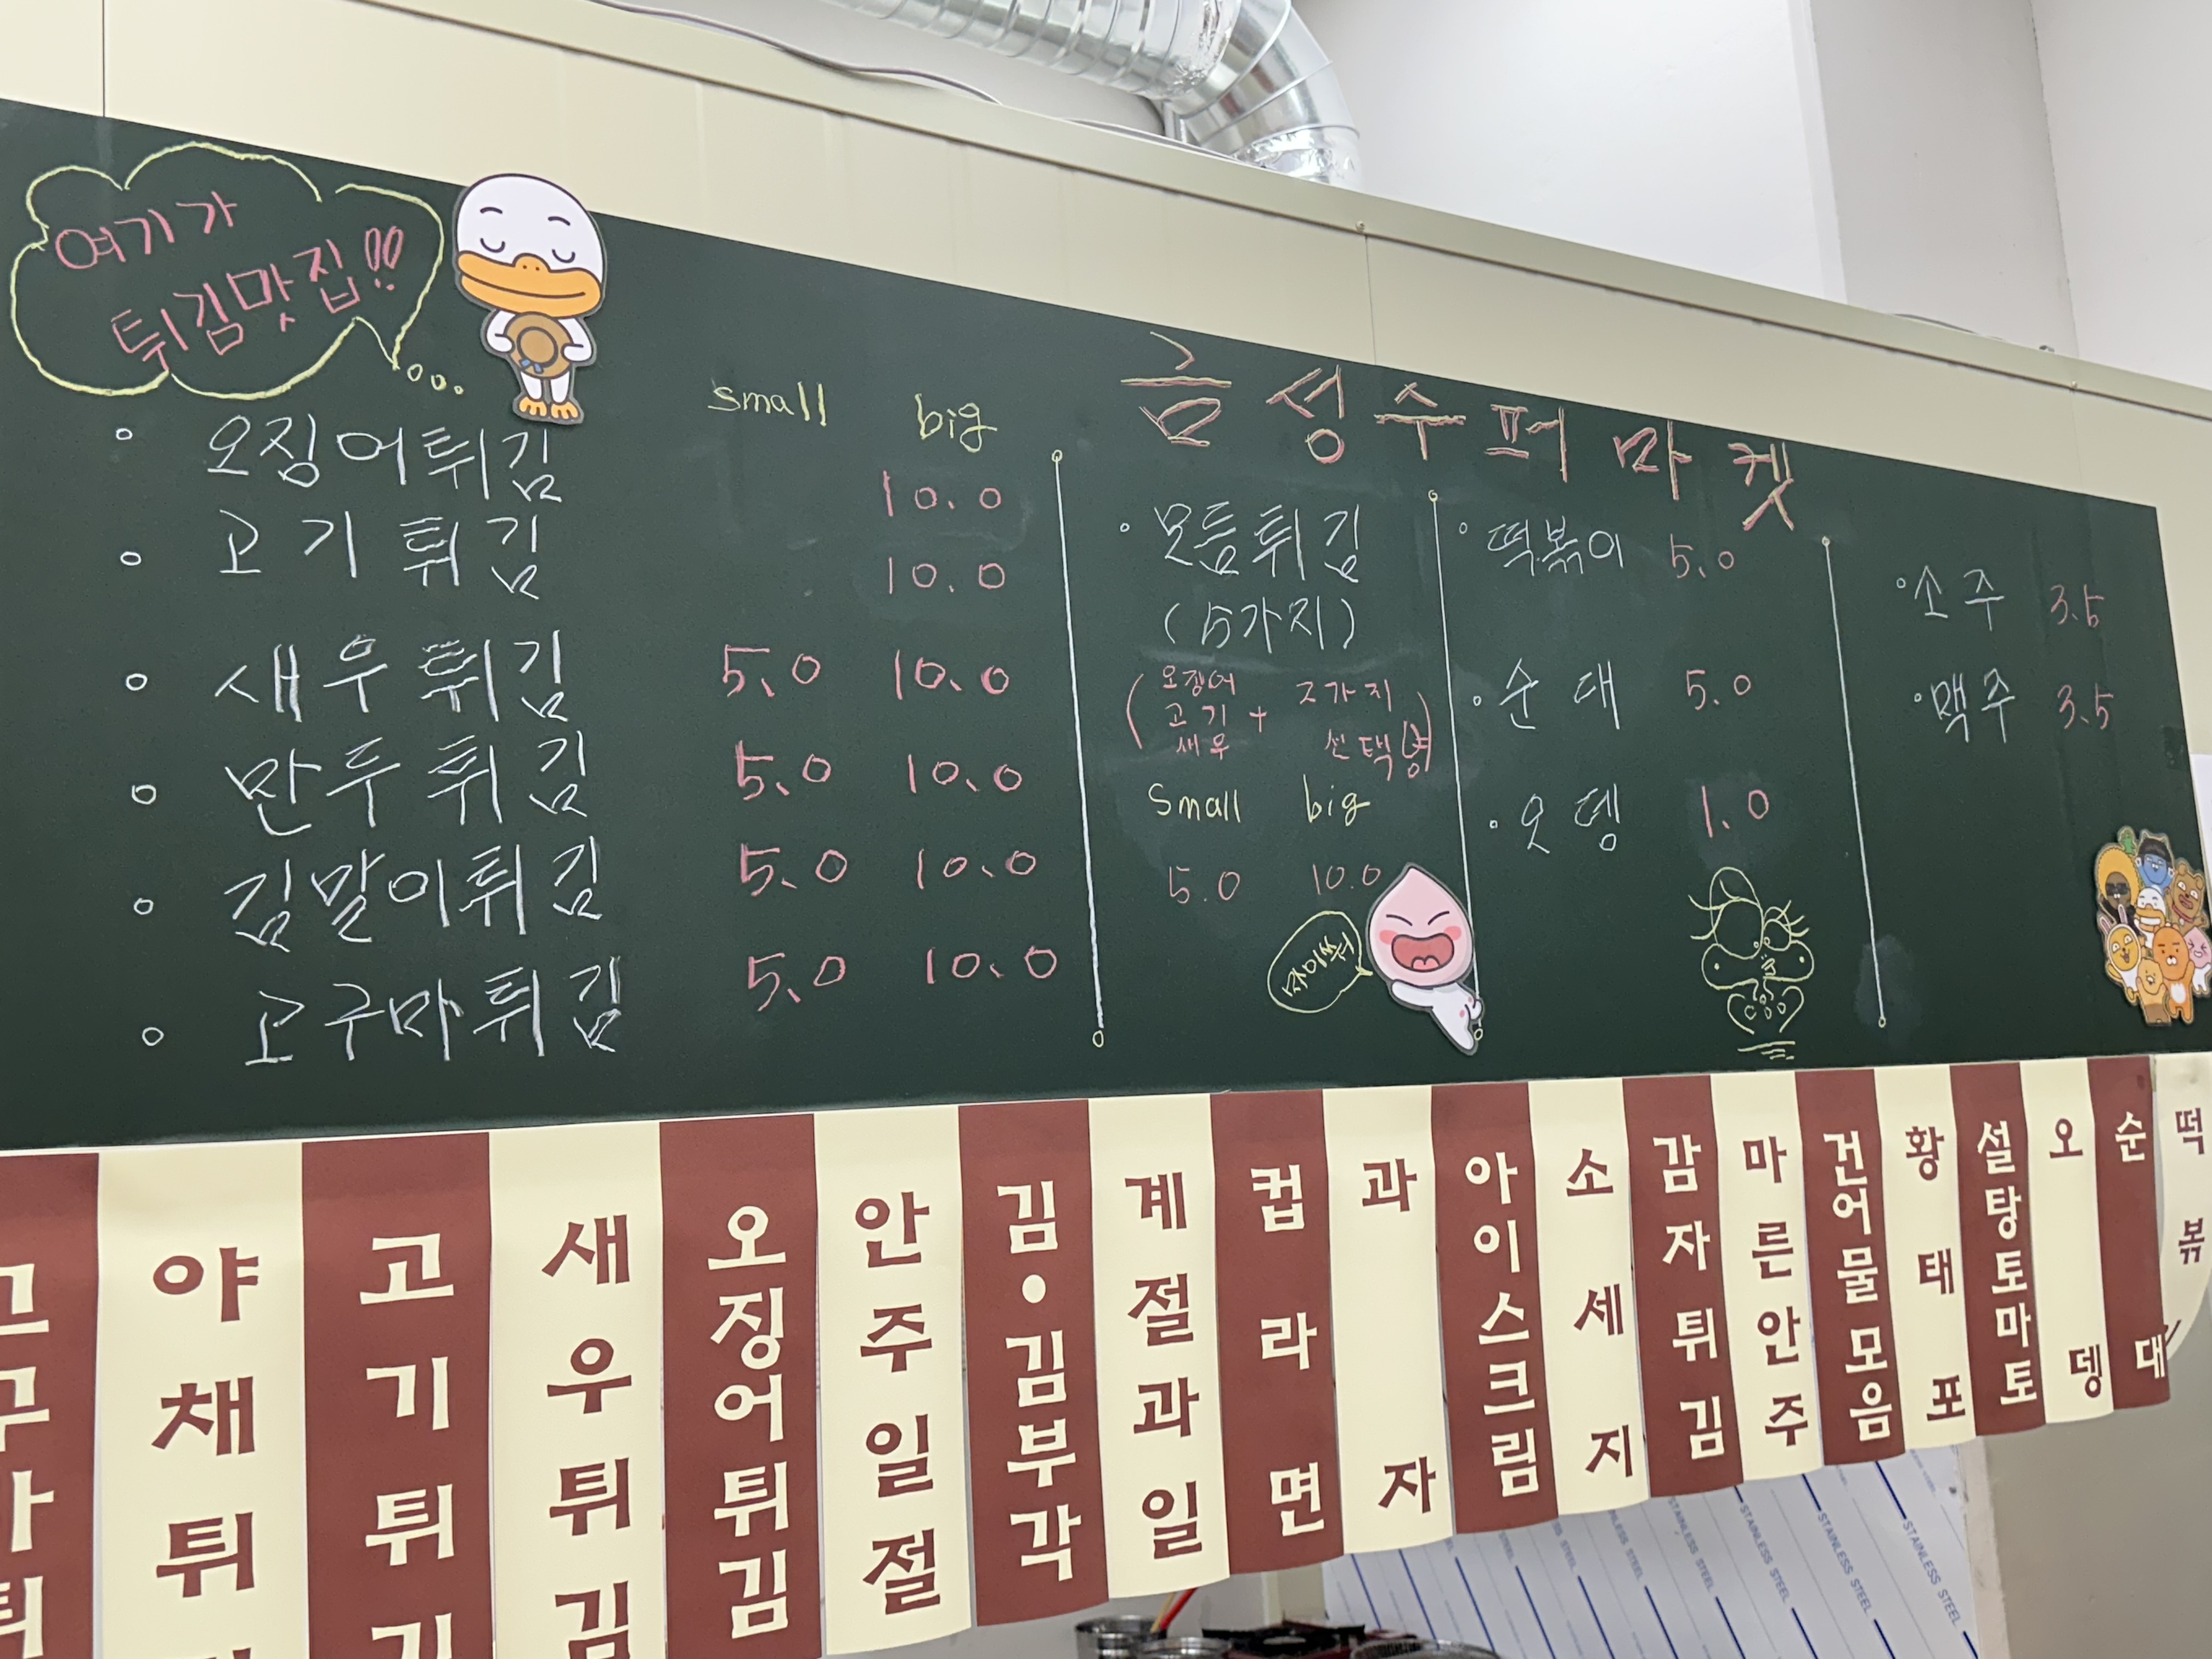 여기가
튀김맛집!!
금성수퍼마켓
small big
오징어튀김 10.0
고기튀김 10.0
새우튀김 5.0 10.0
만두튀김 5.0 10.0
김말이튀김 5.0 10.0
고구마튀김 5.0 10.0
모듬튀김
(5가지)
오징어
고기
새우
+
2가지
선택
small big
5.0 10.0
떡볶이 5.0
순대 5.0
오뎅 1.0
소주 3.5
맥주 3.5
야채튀
고기튀
새우튀김
오징어튀김
안주일절
김•김부각
계절과일
컵라면
과자
아이스크림
소세지
감자튀김
마른안주
건어물모음
황태포
설탕토마토
오뎅
순대
떡볶
STAINLESS STEEL
STAINLESS STEEL
STAINLESS STEEL